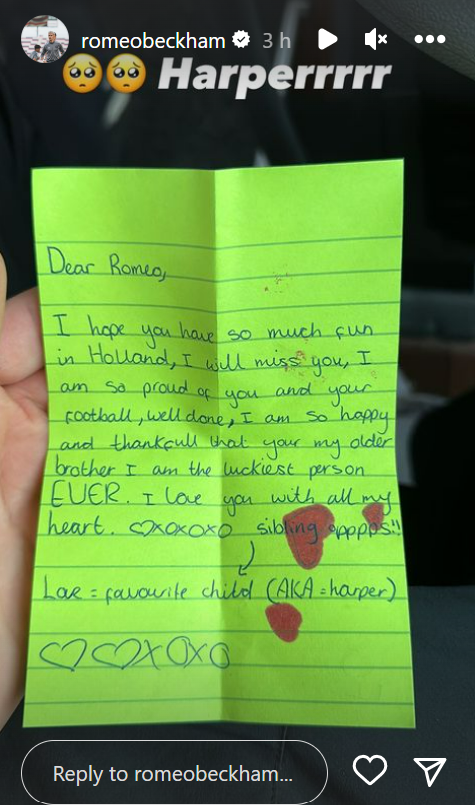 romeobeckham 3 h
🥺🥺 Harperrrrr
Dear Romeo,
I hope you have so much fun
in Holland, I will miss you, I
am so proud of you and your
football, well done, I am so happy
and thankfull that your my older
brother I am the luckiest person
EVER. I love you with all my
heart. ♡xoxoxo sibling opppps!!
Love = favourite child (AKA = harper)
♡♡xoxo
Reply to romeobeckham...